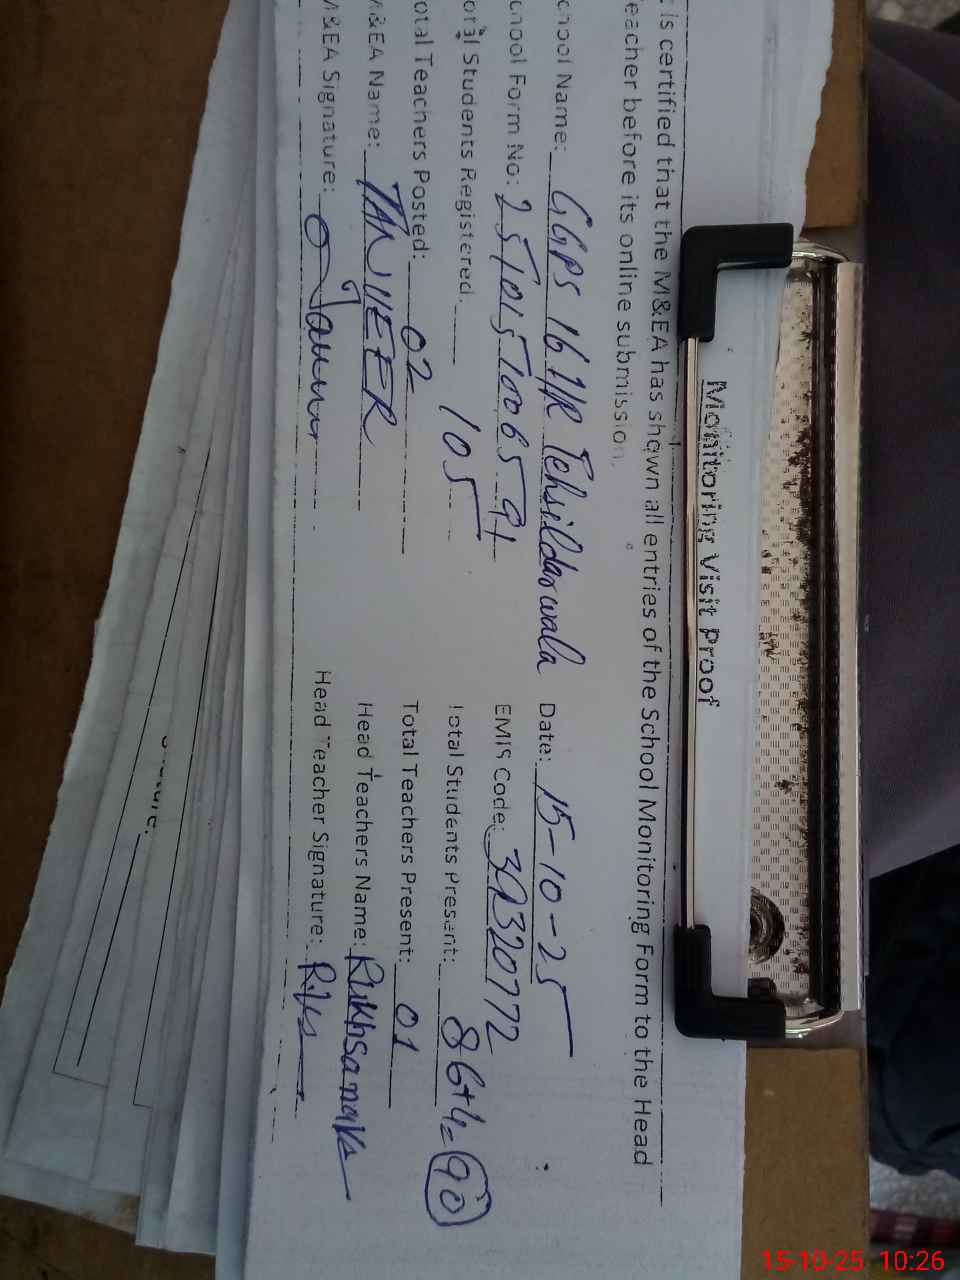 Monitoring Visit Proof
t is certified that the M&EA has shown all entries of the School Monitoring Form to the Head
eacher before its online submission.
chool Name: GGPS 16.1/R Tehsildarwala Date: 15-10-25
chool Form No: EMIS Code: 39320772
otal Students Registered. 105 Total Students Present: 86+4=90
otal Teachers Posted: 02 Total Teachers Present: 01
M&EA Name: TANVEER Head Teachers Name:
M&EA Signature: Head Teacher Signature:
15-10-25 10:26